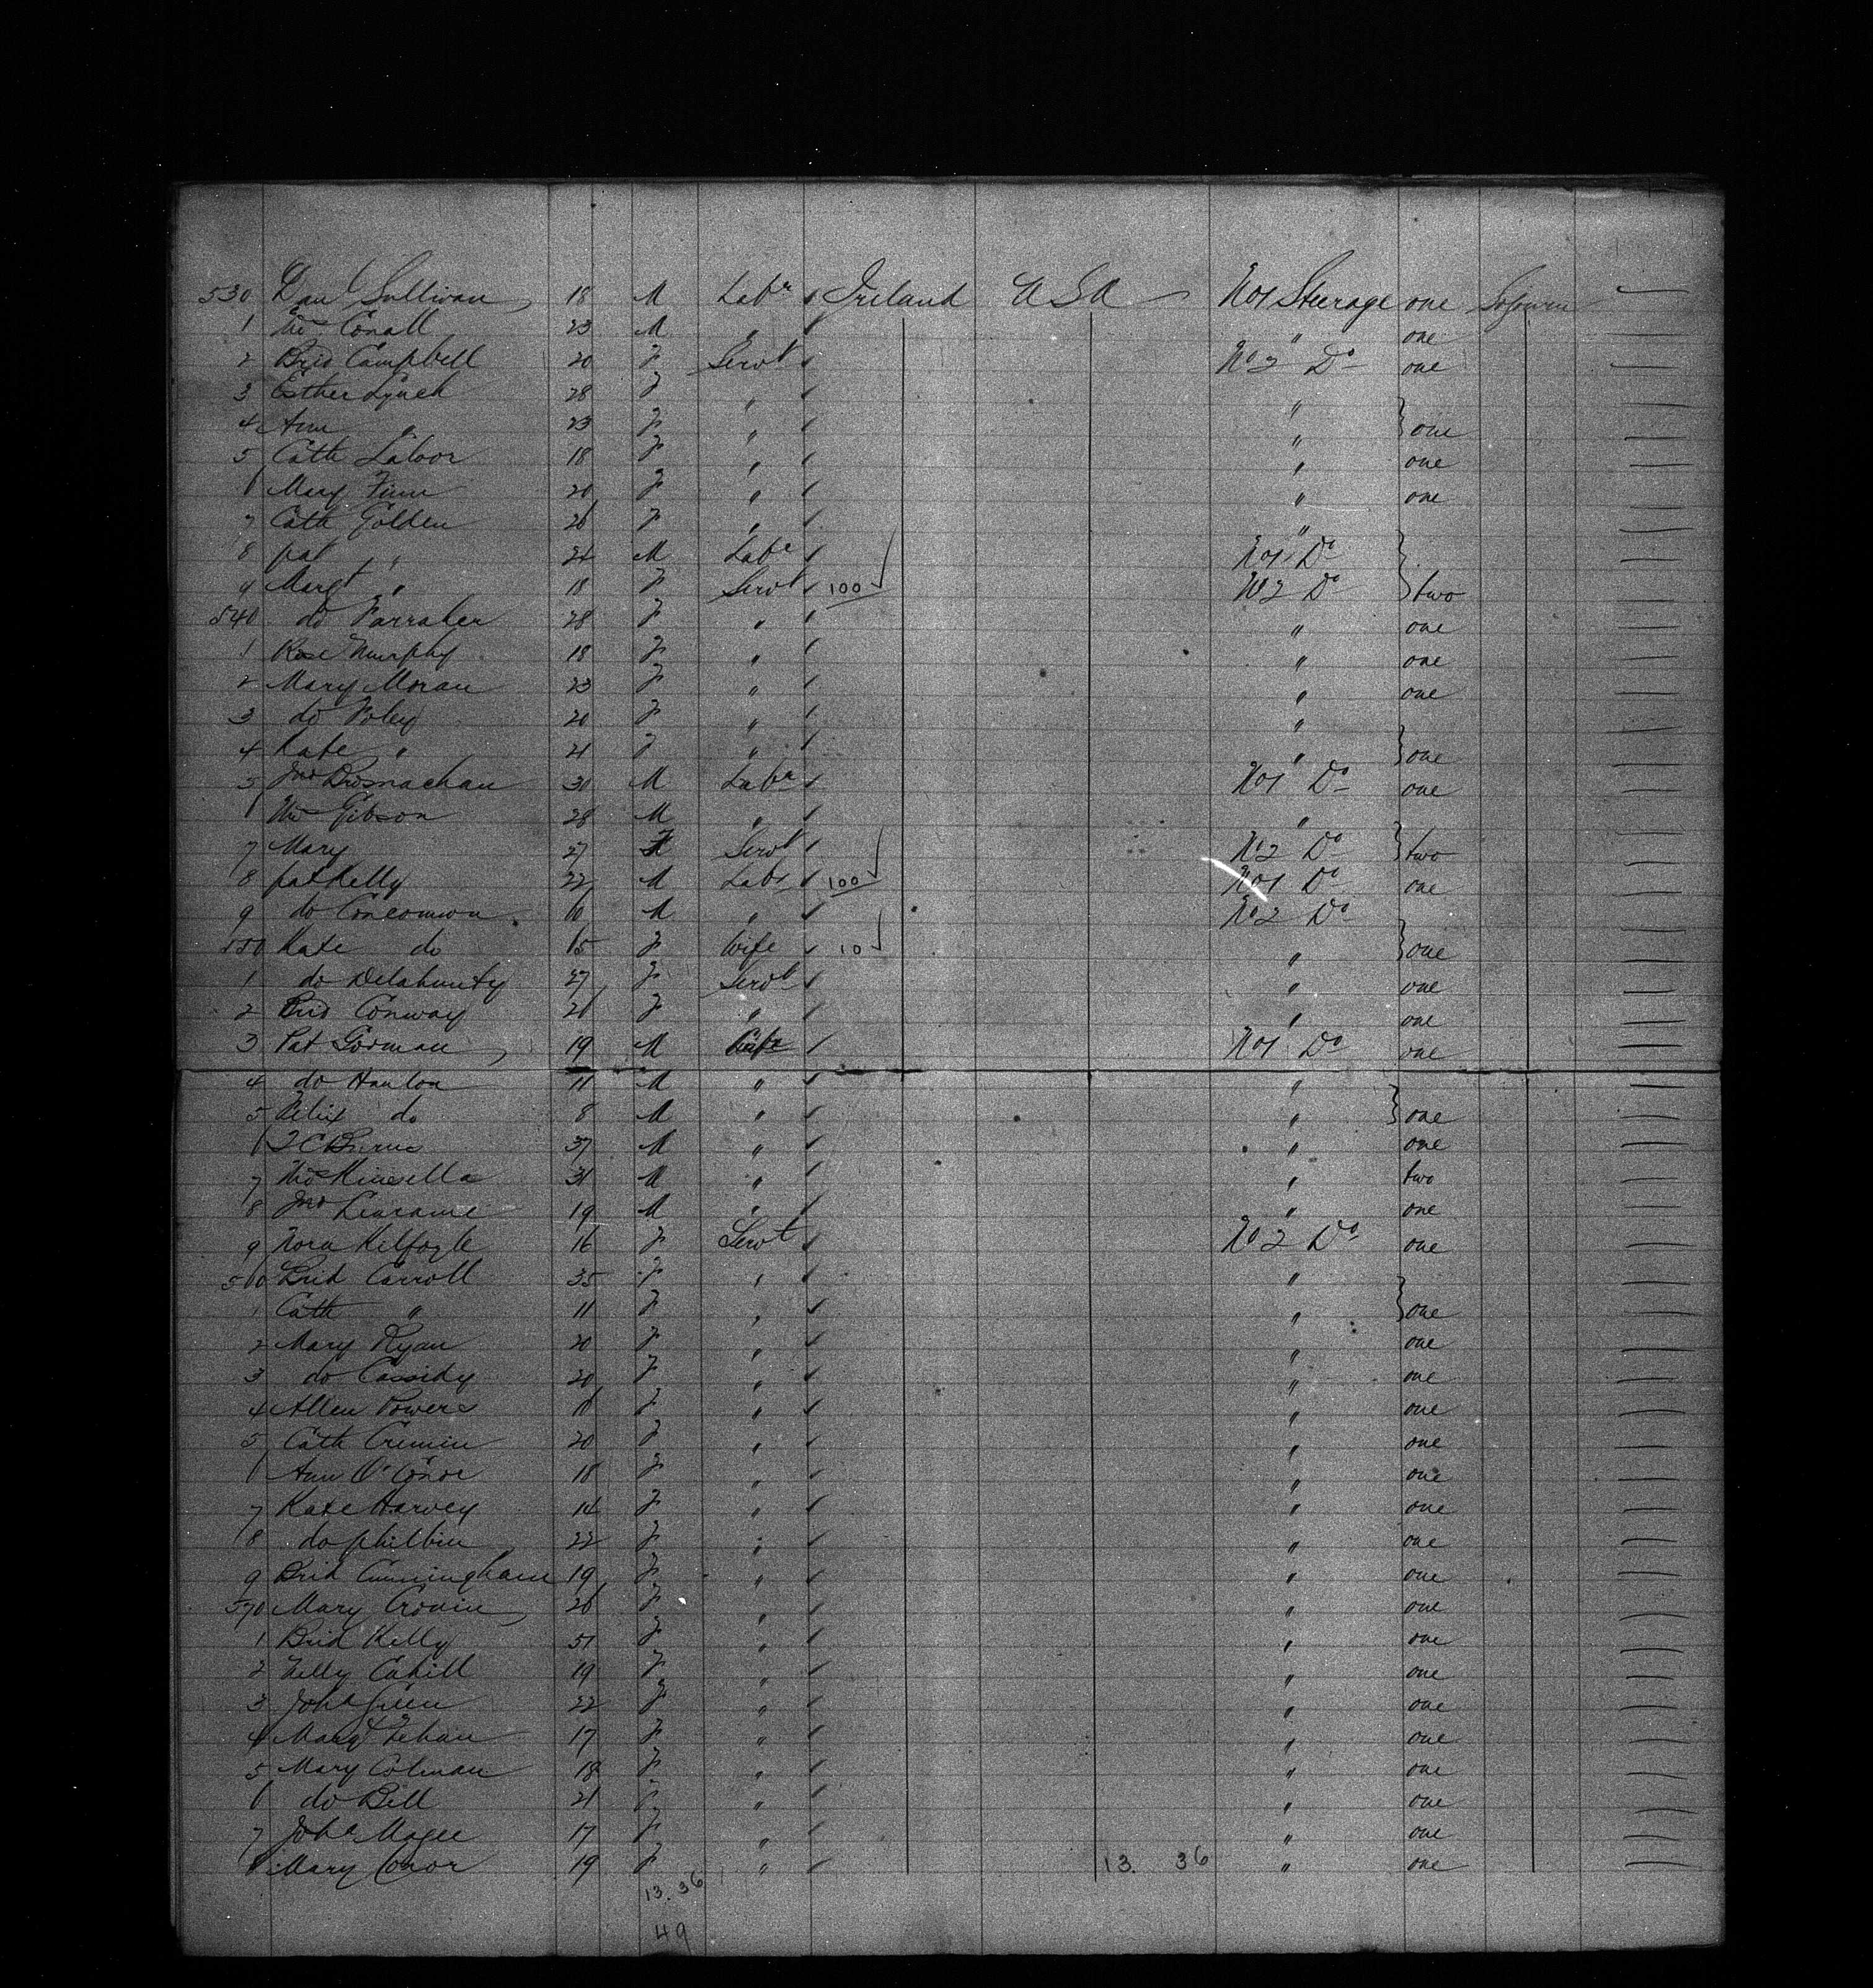 530 Dan Sullivan 18 M Labr Ireland USA No1 Steerage one Sojourn
1 Wm Conall 23 M " " one
2 Brid Campbell 20 F Servt No 2 Do one
3 Esther Lynch 28 F " "
4 Ann " 23 F " " } one
5 Cath Lalor 18 F " " one
6 Mary Finn 20 F " " one
7 Cath Golden 26 F " "
8 pat " 24 M Labr No1 Do
9 Margt " 18 F Servt 100 No 2 Do } two
540 do Farraher 28 F " " one
1 Rose Murphy 18 F " " one
2 Mary Moran 23 F " " one
3 do Foley 20 F " "
4 Kate " 21 F " " } one
5 Jno Brosnachan 30 M Labr No1 Do one
6 Wm Gibson 28 M " "
7 Mary 27 F Servt No 2 Do } two
8 pat Kelly 22 M Labr 100 No1 Do one
9 do Concomon M " No 2 Do
550 Kate do F Wife 10 " } one
1 do Delahunty 27 F Servt " one
2 Brid Conway 26 F " " one
3 Pat Gorman 19 M No1 Do one
4 do Hanlon 11 M " "
5 Felix do 8 M " " } one
6 Burns 37 M " " one
7 Kinsella 31 M " " two
8 Jno 19 M " " one
9 Nora Kilfoyle 16 F Servt No 2 Do one
560 Brid Carroll 35 F " "
1 Cath " 11 F " " } one
2 Mary Ryan 20 F " " one
3 do Cassidy 20 F " " one
4 Allen Powers F " " one
5 Cath Cremin 20 F " " one
6 Ann O'Conor 18 F " " one
7 Kate Harvey 14 F " " one
8 do philbin 22 F " " one
9 Brid Cunningham 19 F " " one
570 Mary Cronin 26 F " " one
1 Brid Kelly 51 F " " one
2 Nelly Cahill 19 F " " one
3 Joha Green 22 F " " one
4 Margt Lehan 17 F " " one
5 Mary Colman 18 F " " one
6 do Bell 21 F " " one
7 Joha Magee 17 F " " one
8 Mary Conor 19 F " 13. 36 " one
13. 36
49